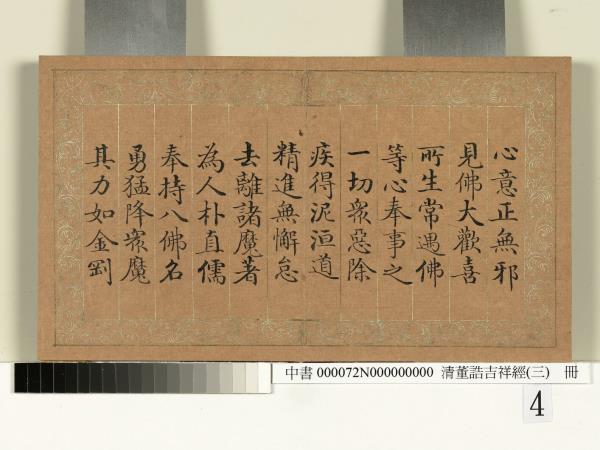 心意正無邪
見佛大歡喜
所生常遇佛
等心奉事之
一切衆惡除
疾得泥洹道
精進無懈怠
去離諸魔著
為人朴直儒
奉持八佛名
勇猛降衆魔
其力如金剛
中書 000072N000000000 清董誥吉祥經(三) 冊
4